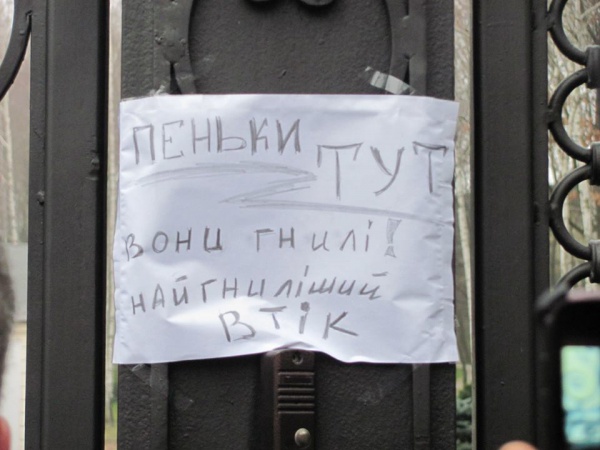 ПЕНЬКИ
ТУТ
ВОНИ ГНИЛІ!
НАЙГНИЛІШИЙ
ВТІК